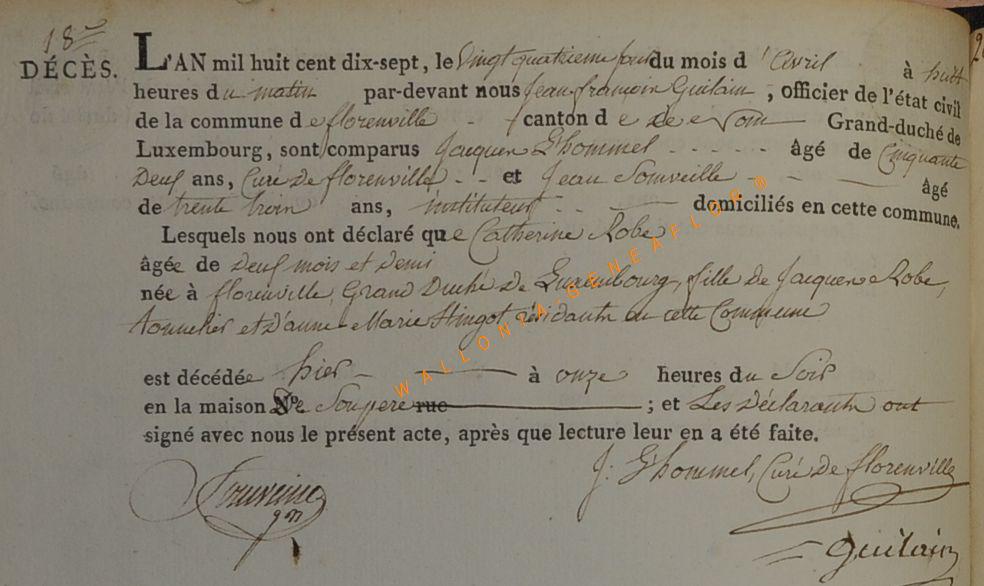 18e
DÉCÈS.
L'AN mil huit cent dix-sept, le Vingt quatrieme jour du mois d'Avril à huit
heures du matin par-devant nous Jean françois Guilain, officier de l'état civil
de la commune de florenville canton d e de Nom Grand-duché de
Luxembourg, sont comparus Jacques L'hommel âgé de Cinquante
Deux ans, Curé de florenville et Jean Somveille âgé
de trente trois ans, instituteur domiciliés en cette commune.
Lesquels nous ont déclaré que Catherine Robe
âgée de Deux mois et Demi
née à florenville, Grand Duché de Luxembourg, fille de Jacques Robe,
tonnelier et d'anne Marie Hingot résidants en cette Commune
est décédée hier à onze heures du Soir
en la maison De Son pere rue ; et Les Déclarants ont
signé avec nous le présent acte, après que lecture leur en a été faite.
J: L'hommel, Curé de florenville
Guilain
WALLONIA-GENEAFLOR®